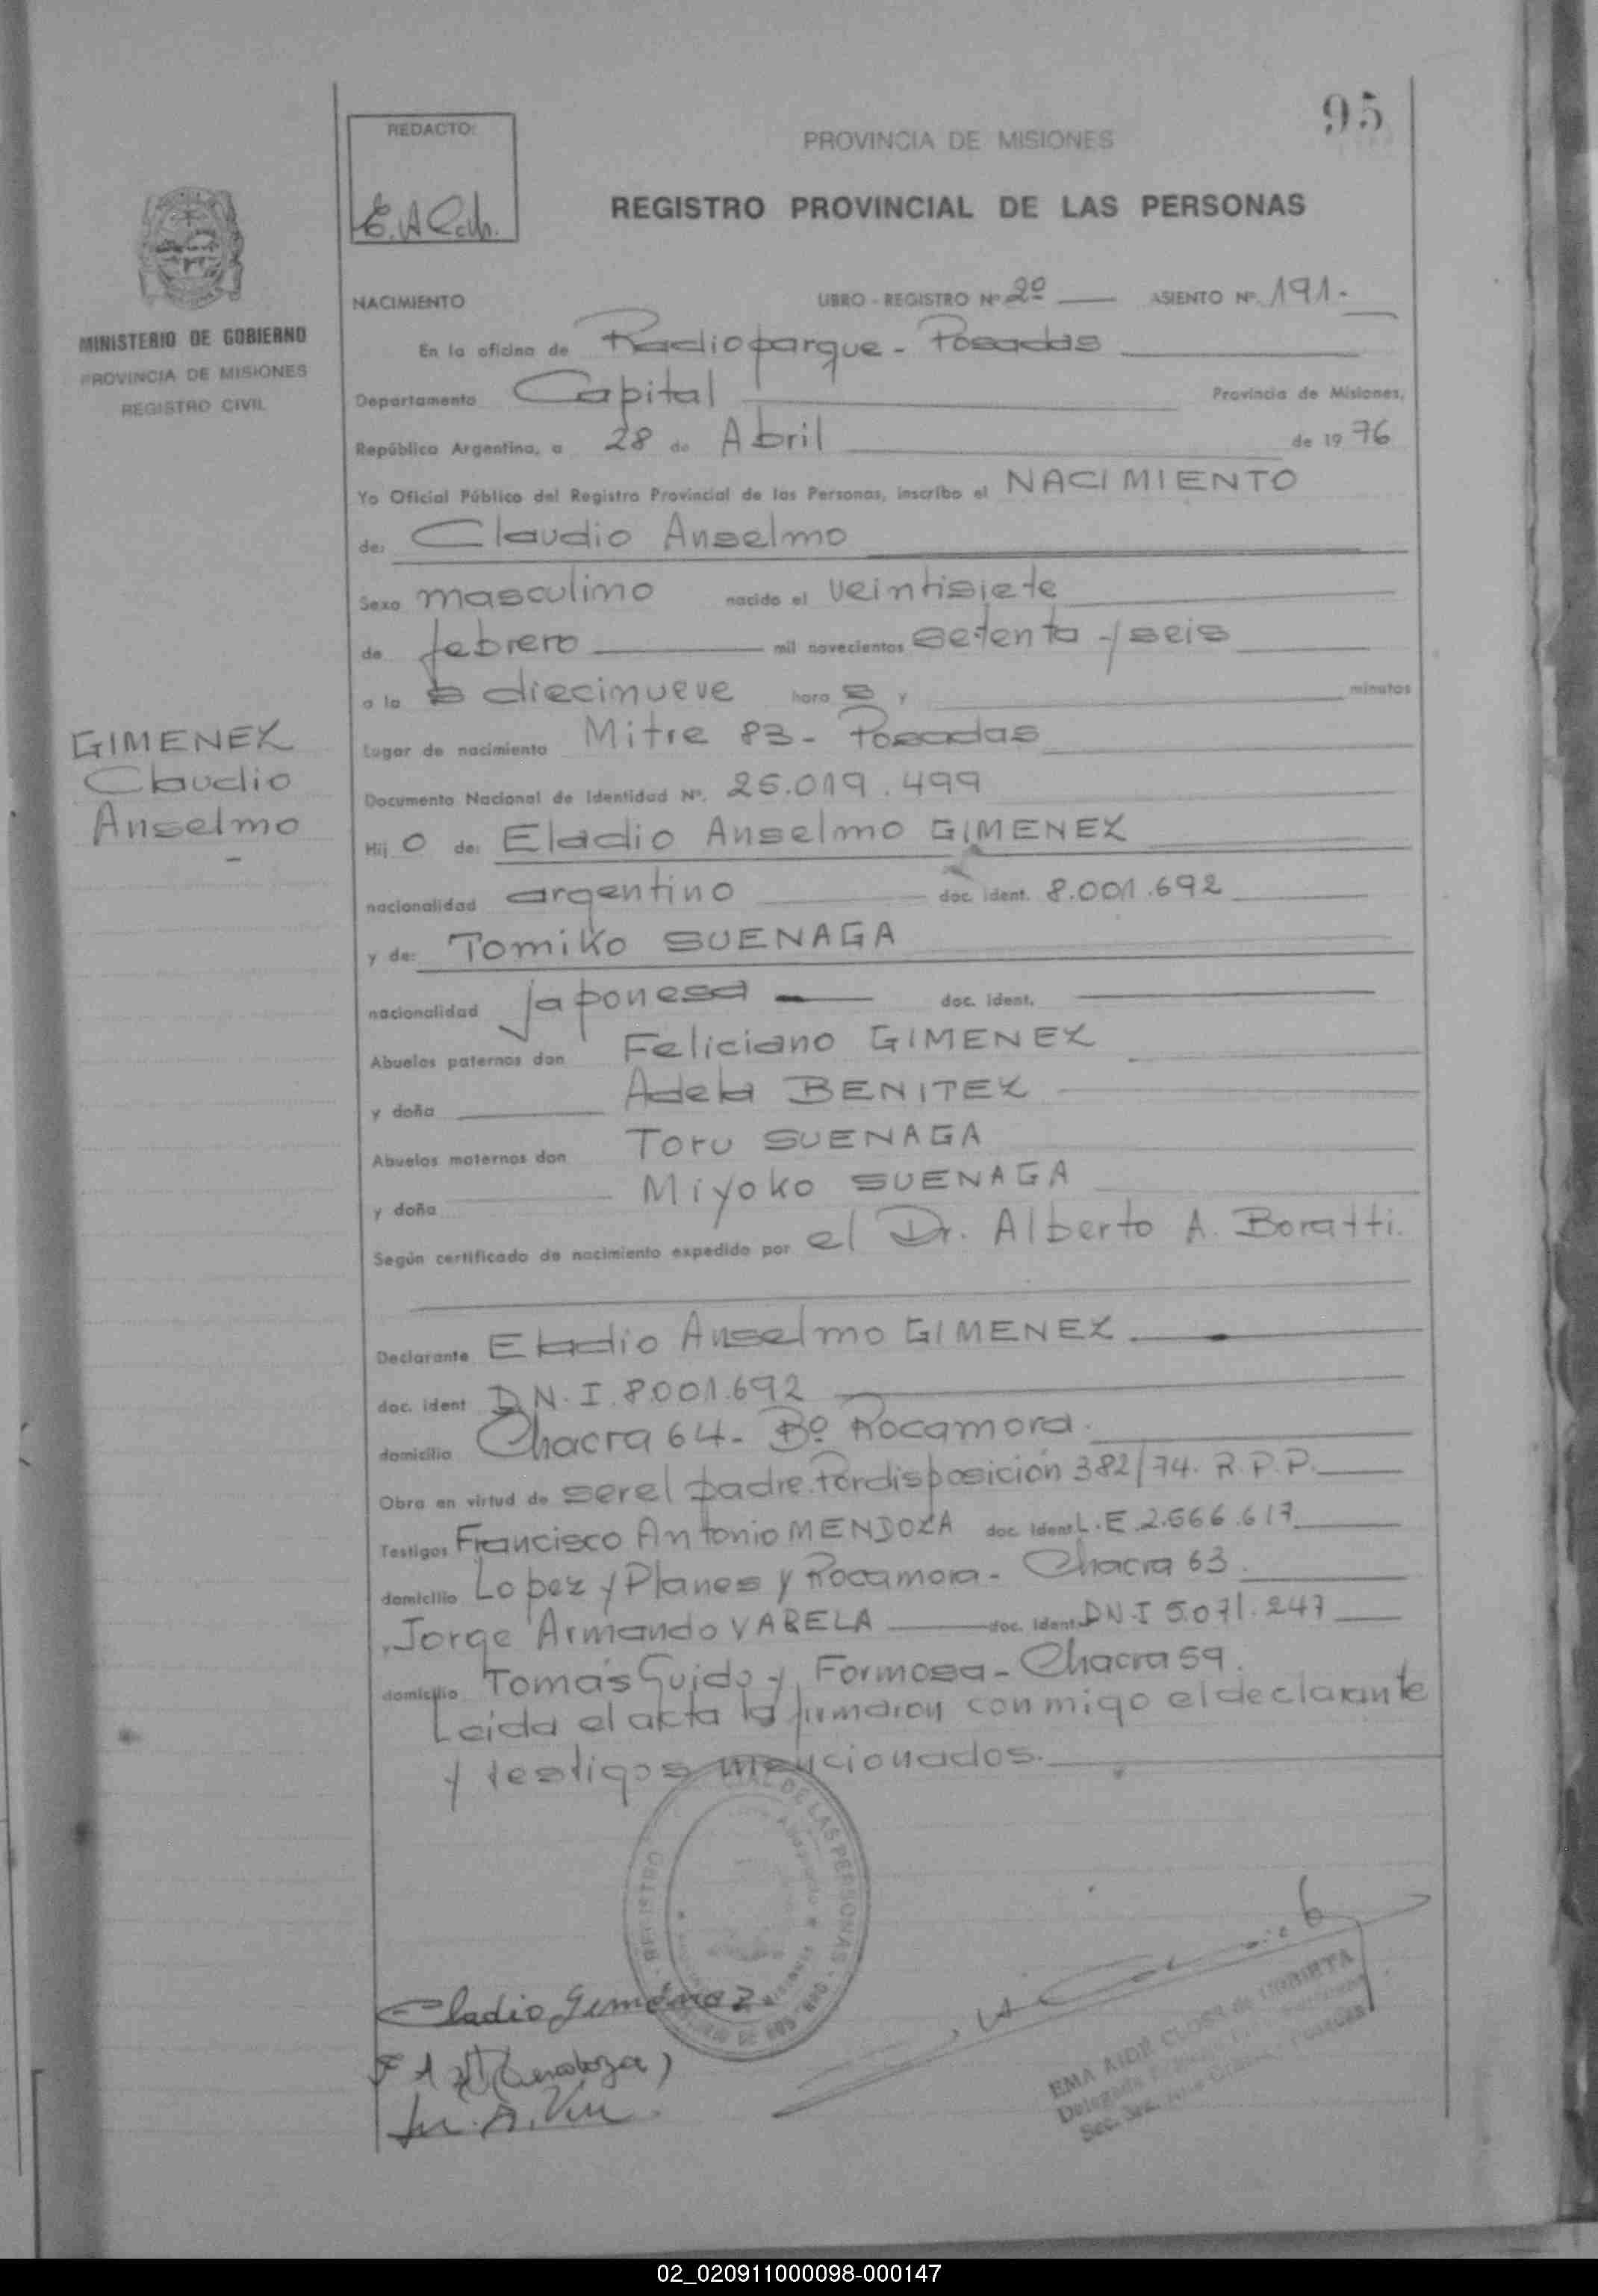 95
REDACTO:
PROVINCIA DE MISIONES
REGISTRO PROVINCIAL DE LAS PERSONAS
MINISTERIO DE GOBIERNO
PROVINCIA DE MISIONES
REGISTRO CIVIL
NACIMIENTO LIBRO - REGISTRO Nº 2º ASIENTO Nº. 191.-
En la oficina de Radioparque - Posadas
Departamento Capital Provincia de Misiones,
República Argentina, a 28 de Abril de 19 76
Yo Oficial Público del Registro Provincial de las Personas, inscribo el NACIMIENTO
de: Claudio Anselmo
Sexo masculino nacido el veintisiete
de febrero mil novecientos setenta y seis
a la s diecinueve hora s y minutos
GIMENEZ
Claudio
Anselmo
-
Lugar de nacimiento Mitre 83 - Posadas
Documento Nacional de Identidad Nº. 25.019.499
Hij o de: Eladio Anselmo GIMENEZ
nacionalidad argentino doc. ident. 8.001.692
y de: Tomiko SUENAGA
nacionalidad japonesa doc. ident.
Abuelos paternos don Feliciano GIMENEZ
y doña Adela BENITEZ
Abuelos maternos don Toru SUENAGA
y doña Miyoko SUENAGA
Según certificado de nacimiento expedido por el Dr. Alberto A. Boratti.
Declarante Eladio Anselmo GIMENEZ
doc. ident D.N.I. 8.001.692
domicilio Chacra 64 - Bº Rocamora.
Obra en virtud de ser el padre. Por disposición 382/74. R.P.P.
Testigos Francisco Antonio MENDOZA doc. ident. L.E. 2.566.617
domicilio Lopez y Planes y Rocamora - Chacra 63.
Jorge Armando VARELA doc. ident. DN.I 5.071.247
domicilio Tomás Guido y Formosa - Chacra 59.
Leida el acta la firmaron conmigo el declarante
y testigos mencionados.
REGISTRO DE LAS PERSONAS
Eladio Gimenez
EMA AIDE CLOSS de URRIETA
Delegada
02_020911000098-000147